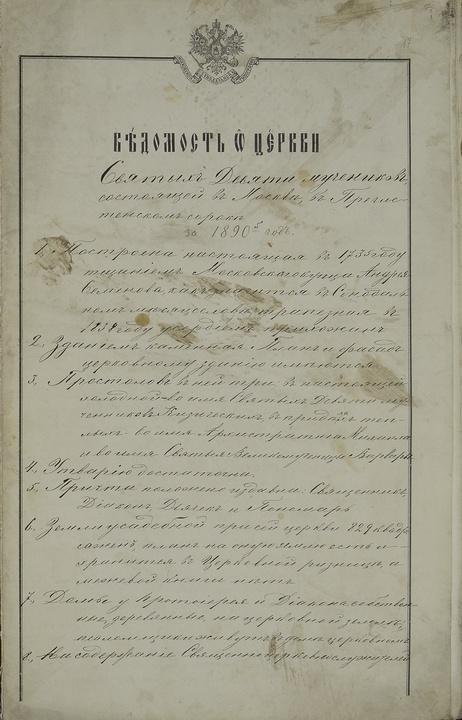 ВѢДОМОСТЬ Ѿ ЦЕРКВИ
Святыхъ Девяти мучениковъ
состоящей въ Москвѣ, въ Пречис-
тенскомъ сорокѣ
за 1890 годъ.
1, Построена настоящая въ 1735 году
тщаніемъ Московскаго купца Андрея
Семенова, какъ значится въ Сѵнодаль-
номъ мѣсяцесловѣ, трапезная въ
году усердіемъ прихожанъ
2, Зданіемъ каменная. Планъ и фасадъ
церковному зданію имѣются
3, Престоловъ въ ней три: въ настоящей
холодной во имя Святыхъ Девяти му-
чениковъ Кизическихъ, въ придѣлахъ теп-
лыхъ во имя Архистратига Михаила
и во имя Святыя Великомученицы Варвары
4, Утварію достаточна.
5, Причта положено издавна: Священникъ,
Діаконъ, Дьячекъ и Пономарь
6, Земли усадебной при сей церкви 829 квадр.
саженъ, планъ на оную землю есть и
хранится въ Церковной ризницѣ, а
межевой книги нѣтъ
7, Домы у Протоіерея и Діакона собствен-
ные, деревянные, на церковной землѣ,
псаломщики живутъ въ домѣ церковномъ
8, На содержаніе Священноцерковнослужителей